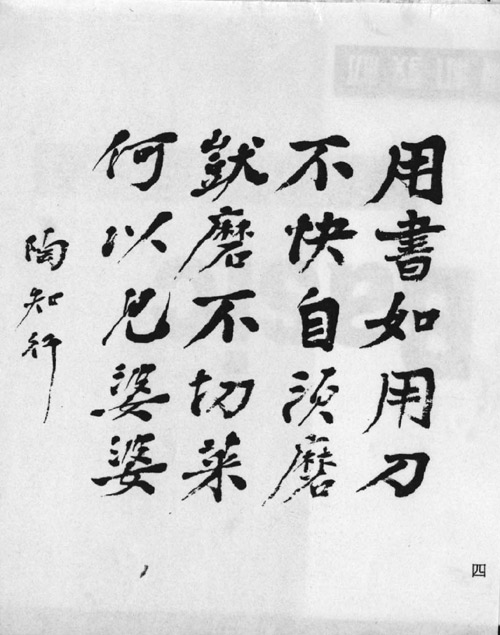 用書如用刀
不快自須磨
獃磨不切菜
何以見婆婆
陶知行
四